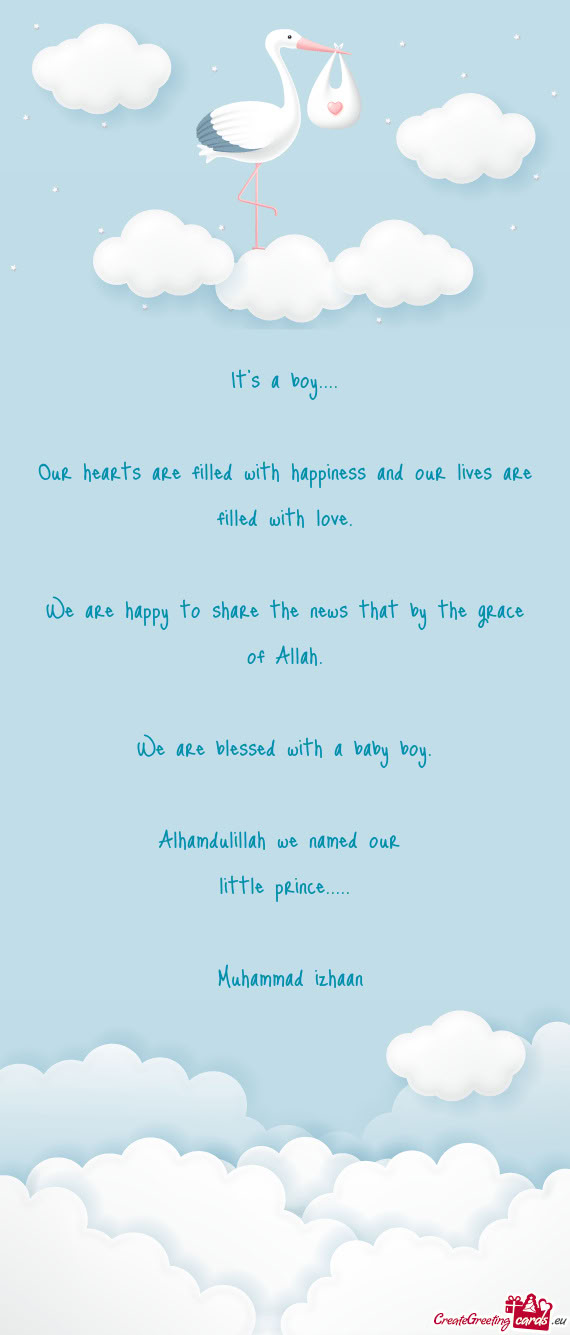 It's a boy....
Our hearts are filled with happiness and our lives are
filled with love.
We are happy to share the news that by the grace
of Allah.
We are blessed with a baby boy.
Alhamdulillah we named our
little prince.....
Muhammad izhaan
CreateGreeting cards .eu